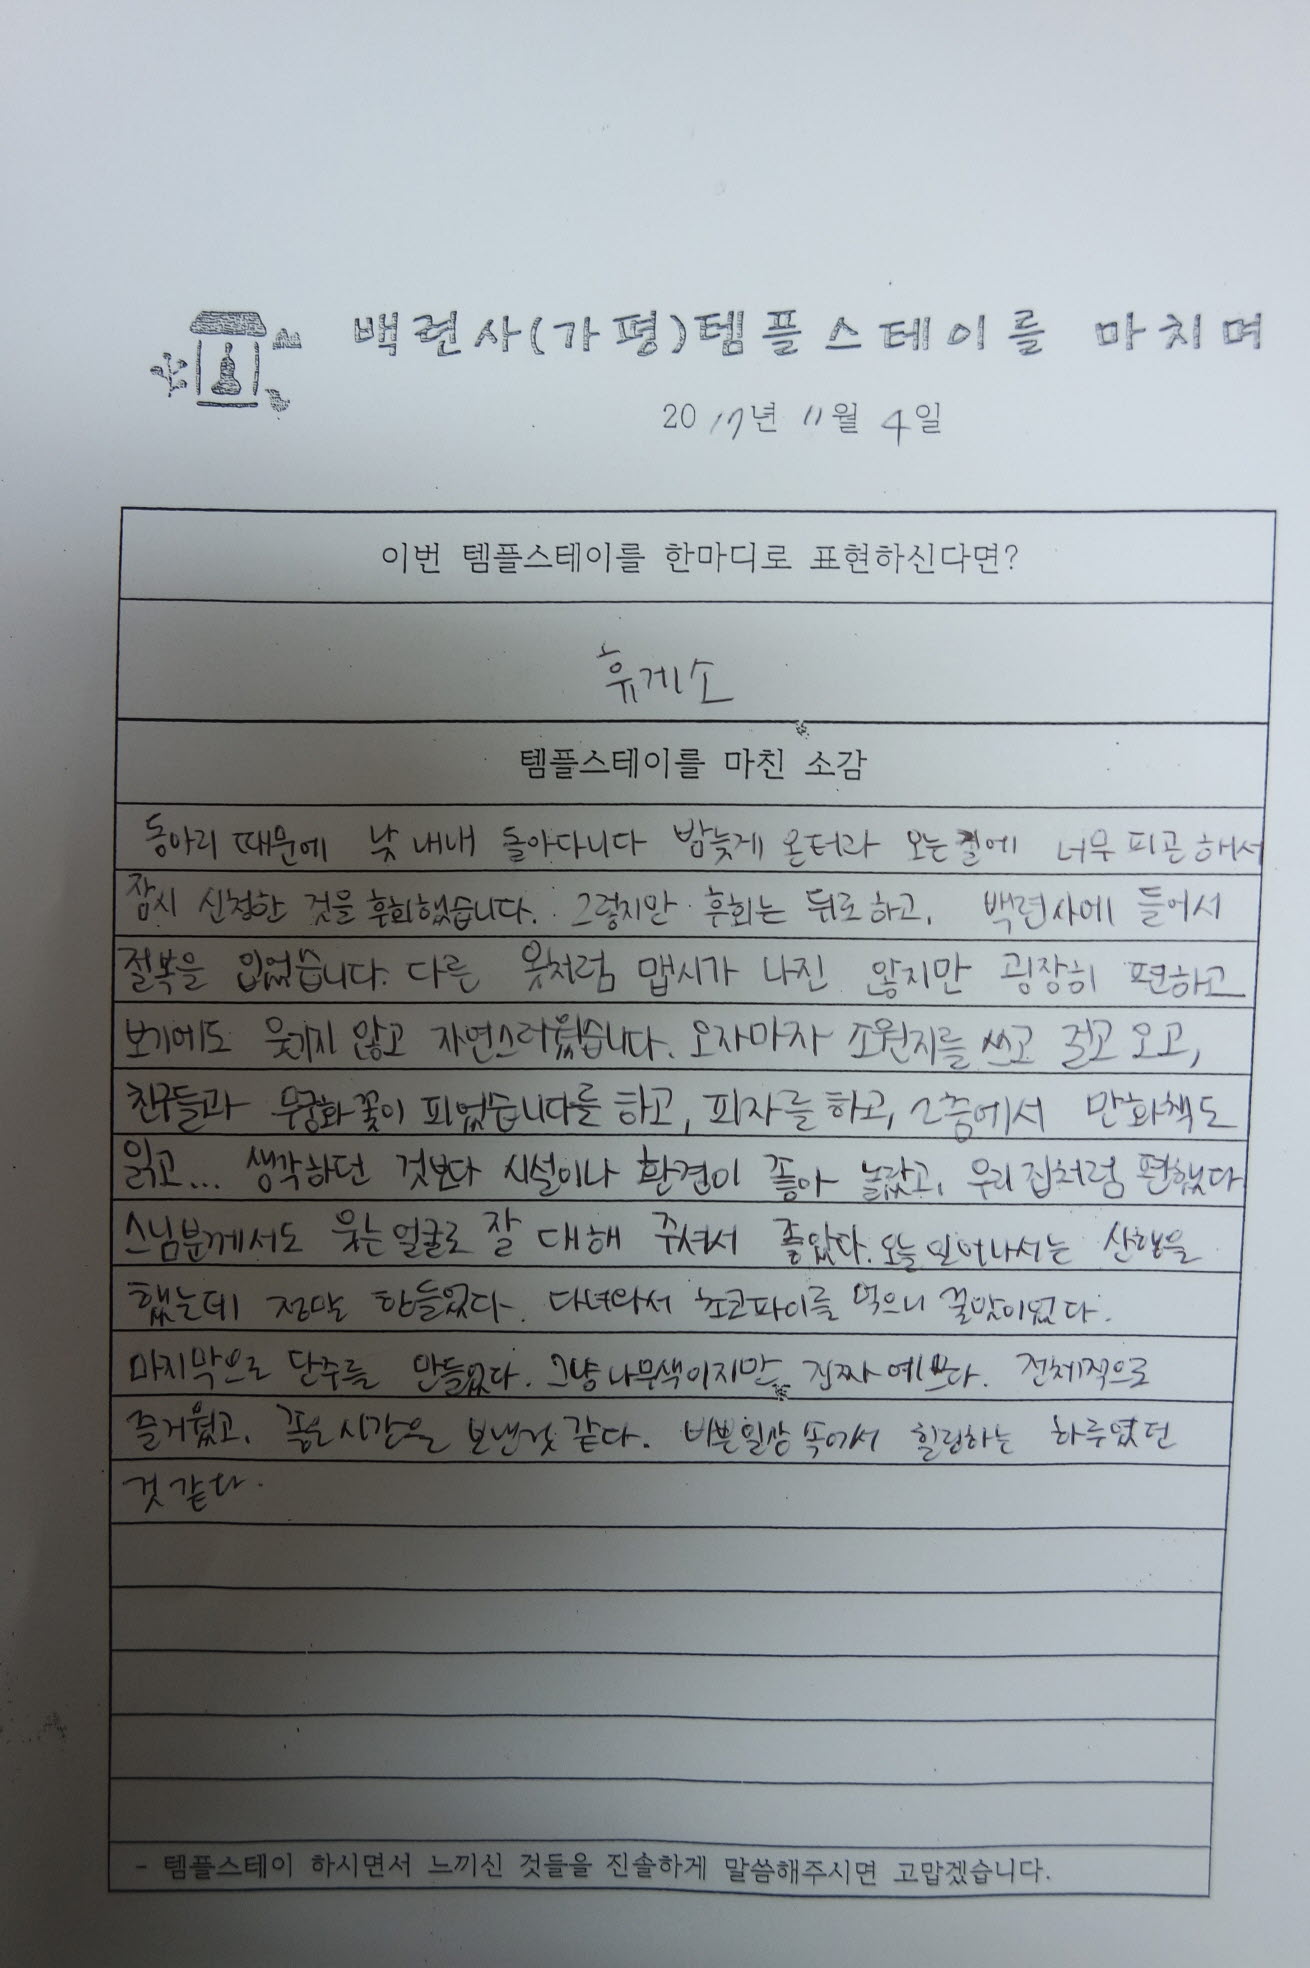 백련사(가평)템플스테이를 마치며
2017년 11월 4일
이번 템플스테이를 한마디로 표현하신다면?
휴게소
템플스테이를 마친 소감
동아리 때문에 낮 내내 돌아다니다 밤늦게 온터라 오는 길에 너무 피곤해서
잠시 신청한 것을 후회했습니다. 그렇지만 후회는 뒤로하고, 백련사에 들어서
절복을 입었습니다. 다른 옷처럼 맵시가 나진 않지만 굉장히 편하고
보기에도 웃기지 않고 자연스러웠습니다. 오자마자 소원지를 쓰고 걸고 오고,
친구들과 무궁화 꽃이 피었습니다를 하고, 피자를 하고, 2층에서 만화책도
읽고... 생각하던 것보다 시설이나 환경이 좋아 놀랐고, 우리집처럼 편했다
스님분께서도 웃는 얼굴로 잘 대해 주셔서 좋았다. 오늘 일어나서는 산행을
했는데 정말 힘들었다. 다녀와서 초코파이를 먹으니 꿀맛이었다.
마지막으로 단주를 만들었다. 그냥 나무색이지만 진짜 예쁘다. 전체적으로
즐거웠고, 좋은 시간을 보낸것 같다. 바쁜일상 속에서 힐링하는 하루였던
것 같다.
- 템플스테이 하시면서 느끼신 것들을 진솔하게 말씀해주시면 고맙겠습니다.